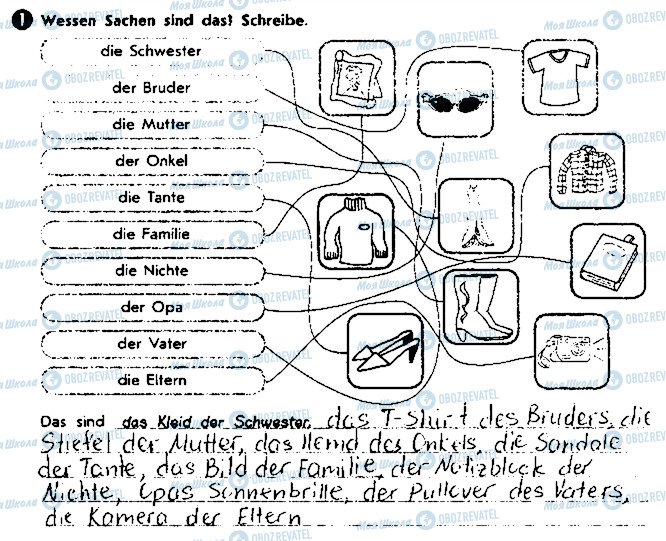 1 Wessen Sachen sind das? Schreibe.
die Schwester
der Bruder
die Mutter
der Onkel
die Tante
die Familie
die Nichte
der Opa
der Vater
die Eltern
Das sind das Kleid der Schwester, das T-Shirt des Bruders, die
Stiefel der Mutter, das Hemd des Onkels, die Sandale
der Tante, das Bild der Familie, der Notizblock der
Nichte, Opas Sonnenbrille, der Pullover des Vaters,
die Kamera der Eltern